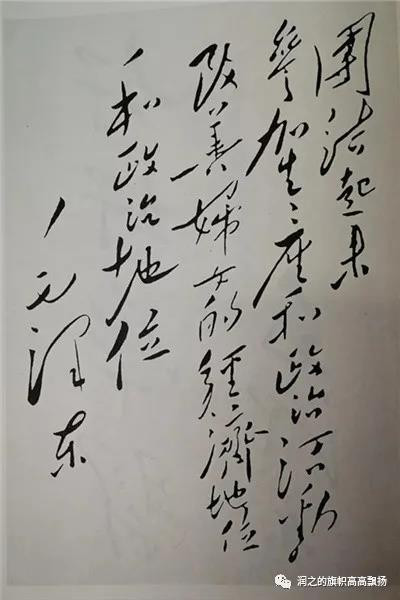 團结起来
參加生産和政治活動
改善婦女的經濟地位
和政治地位
毛泽东
洞之的旗帜高高飘扬